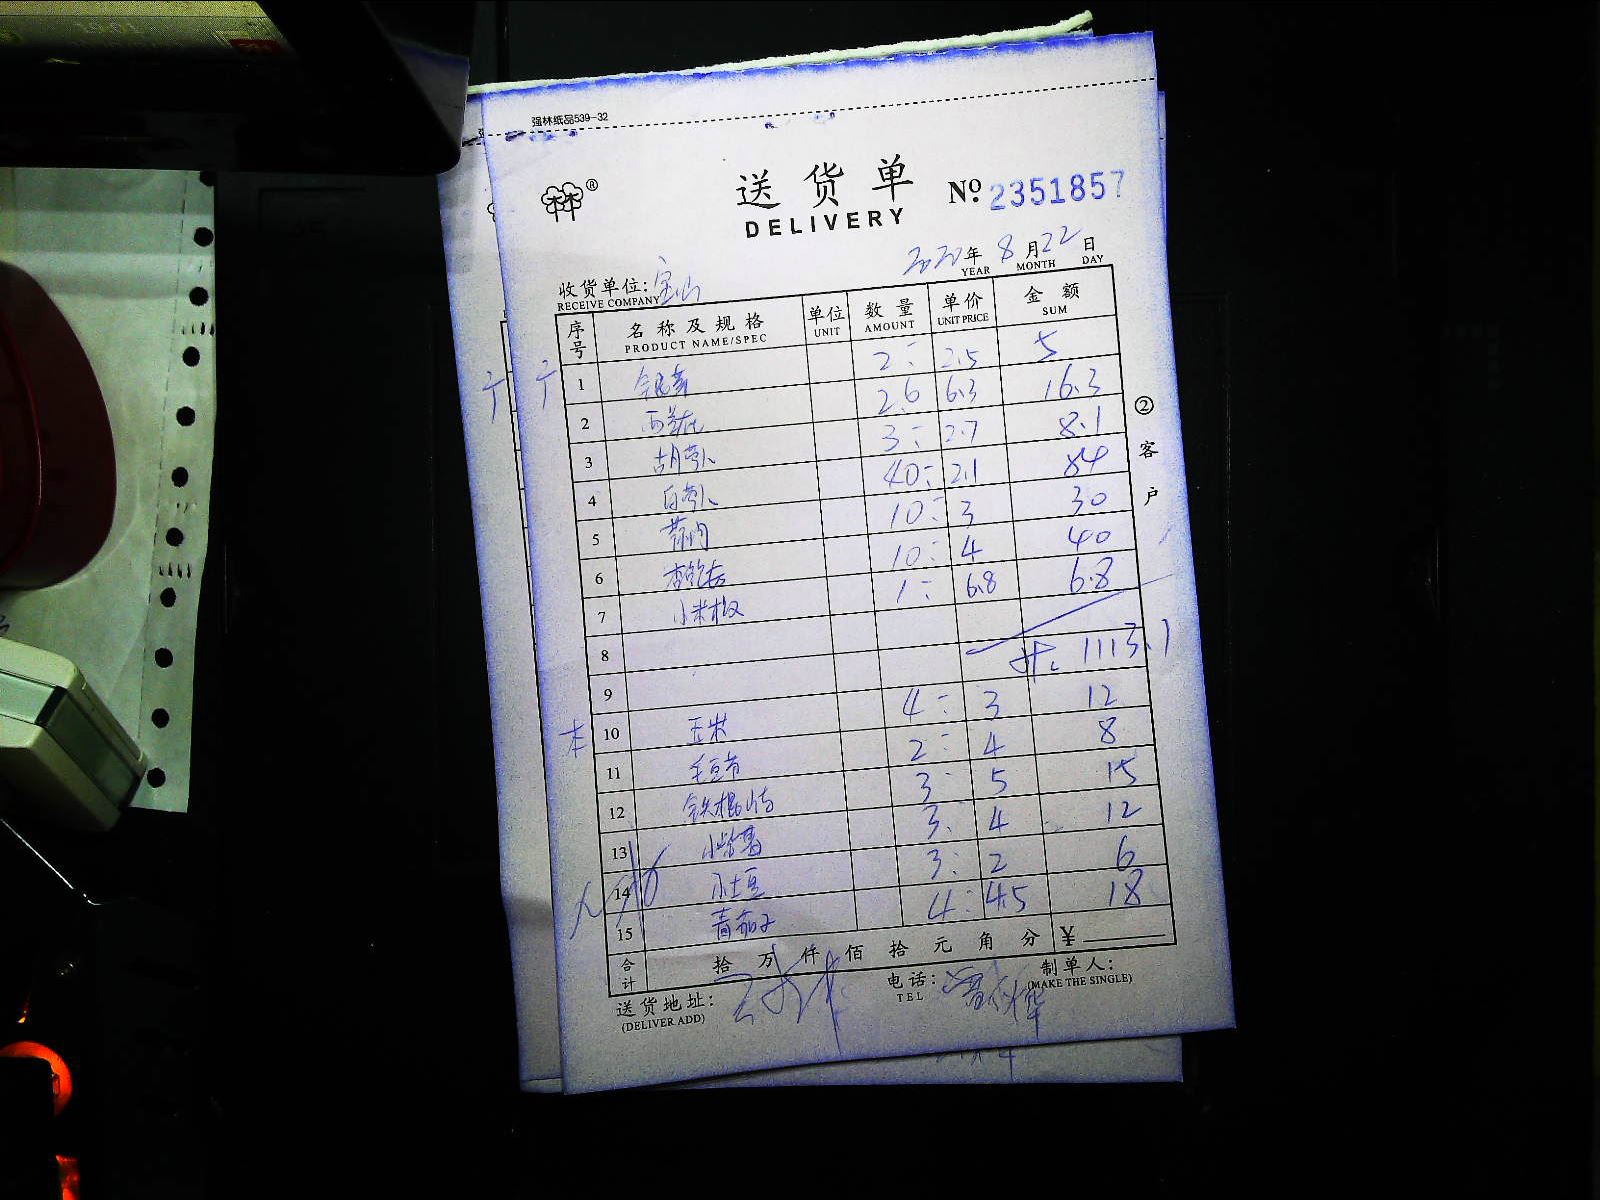 强林纸品539-32
送货单
DELIVERY
№ 2351857
2020年8月22日
YEAR MONTH DAY
收货单位:宝山
RECEIVE COMPANY
序号 名称及规格 单位 数量 单价 金额
PRODUCT NAME/SPEC UNIT AMOUNT UNIT PRICE SUM
1 2: 2.5 5
2 西兰花 2.6 6.3 16.3
3 胡萝卜 3: 2.7 8.1
4 白萝卜 40: 2.1 84
5 10: 3 30
6 杏鲍菇 10: 4 40
7 小米椒 1: 6.8 6.8
8
9 1113.1
10 玉米 4: 3 12
11 毛豆节 2: 4 8
12 铁棍山药 3: 5 15
13 小紫薯 3: 4 12
14 小土豆 3: 2 6
15 青茄子 4: 4.5 18
合计 拾 万 仟 佰 拾 元 角 分 ¥
送货地址: 电话: 制单人:
(DELIVER ADD) TEL (MAKE THE SINGLE)
②客户